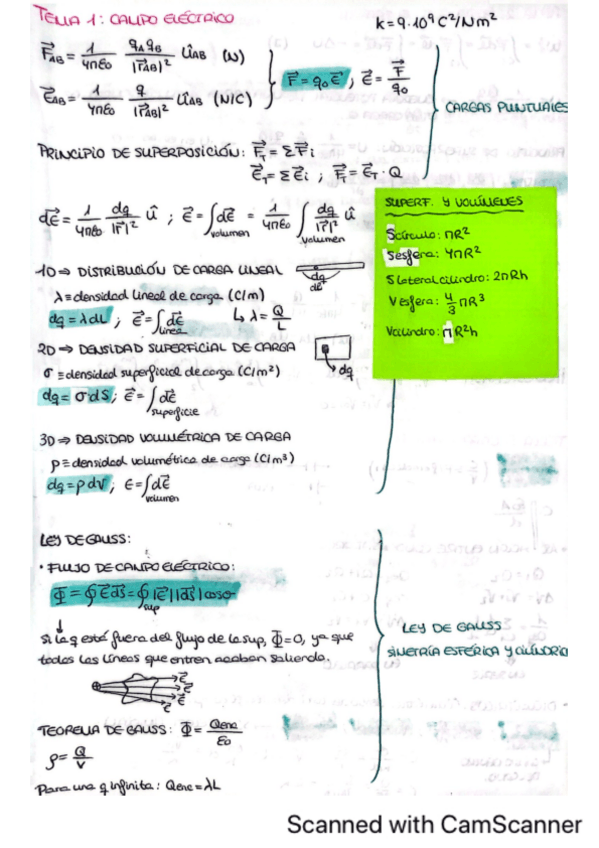 TEMA 1: CAMPO ELÉCTRICO
K=9·10⁹ C²/Nm²
F⃗AB = 1/4πε0 qA qB/|r⃗AB|² ûAB (N)
F⃗ = q0 ε⃗ ; ε⃗ = F⃗/q0
ε⃗AB = 1/4πε0 q/|r⃗AB|² ûAB (N/C)
CARGAS PUNTUALES
PRINCIPIO DE SUPERPOSICIÓN: F⃗T = ΣF⃗i
ε⃗T = Σε⃗i ; F⃗T = ε⃗T · Q
dε⃗ = 1/4πε0 dq/|r⃗|² û ; ε⃗ = ∫volumen dε⃗ = 1/4πε0 ∫volumen dq/|r⃗|² û
SUPERF. Y VOLÚMENES
Scírculo: πR²
Sesfera: 4πR²
Slateral cilindro: 2πRh
Vesfera: 4/3 πR³
Vcilindro: πR²h
1D ⇒ DISTRIBUCIÓN DE CARGA LINEAL
dq
dε
λ ≡ densidad lineal de carga (C/m)
dq = λdL ; ε⃗ = ∫línea dε⃗
↳ λ = Q/L
2D ⇒ DENSIDAD SUPERFICIAL DE CARGA
dq
σ ≡ densidad superficial de carga (C/m²)
dq = σdS ; ε⃗ = ∫superficie dε⃗
3D ⇒ DENSIDAD VOLUMÉTRICA DE CARGA
ρ ≡ densidad volumétrica de carga (C/m³)
dq = ρdV ; ε = ∫volumen dε⃗
LEY DE GAUSS:
· FLUJO DE CAMPO ELÉCTRICO:
Φ = ∮ε⃗ dS⃗ = ∮sup |ε⃗||dS⃗| cosσ
si la q está fuera del flujo de la sup, Φ=0, ya que
todas las líneas que entren acaban saliendo.
ε⃗
ε⃗
ε⃗
ε⃗
LEY DE GAUSS
SIMETRÍA ESFÉRICA Y CILÍNDRICA
TEOREMA DE GAUSS: Φ = Qenc/ε0
ρ = Q/V
Para una q infinita: Qenc = λL
Scanned with CamScanner